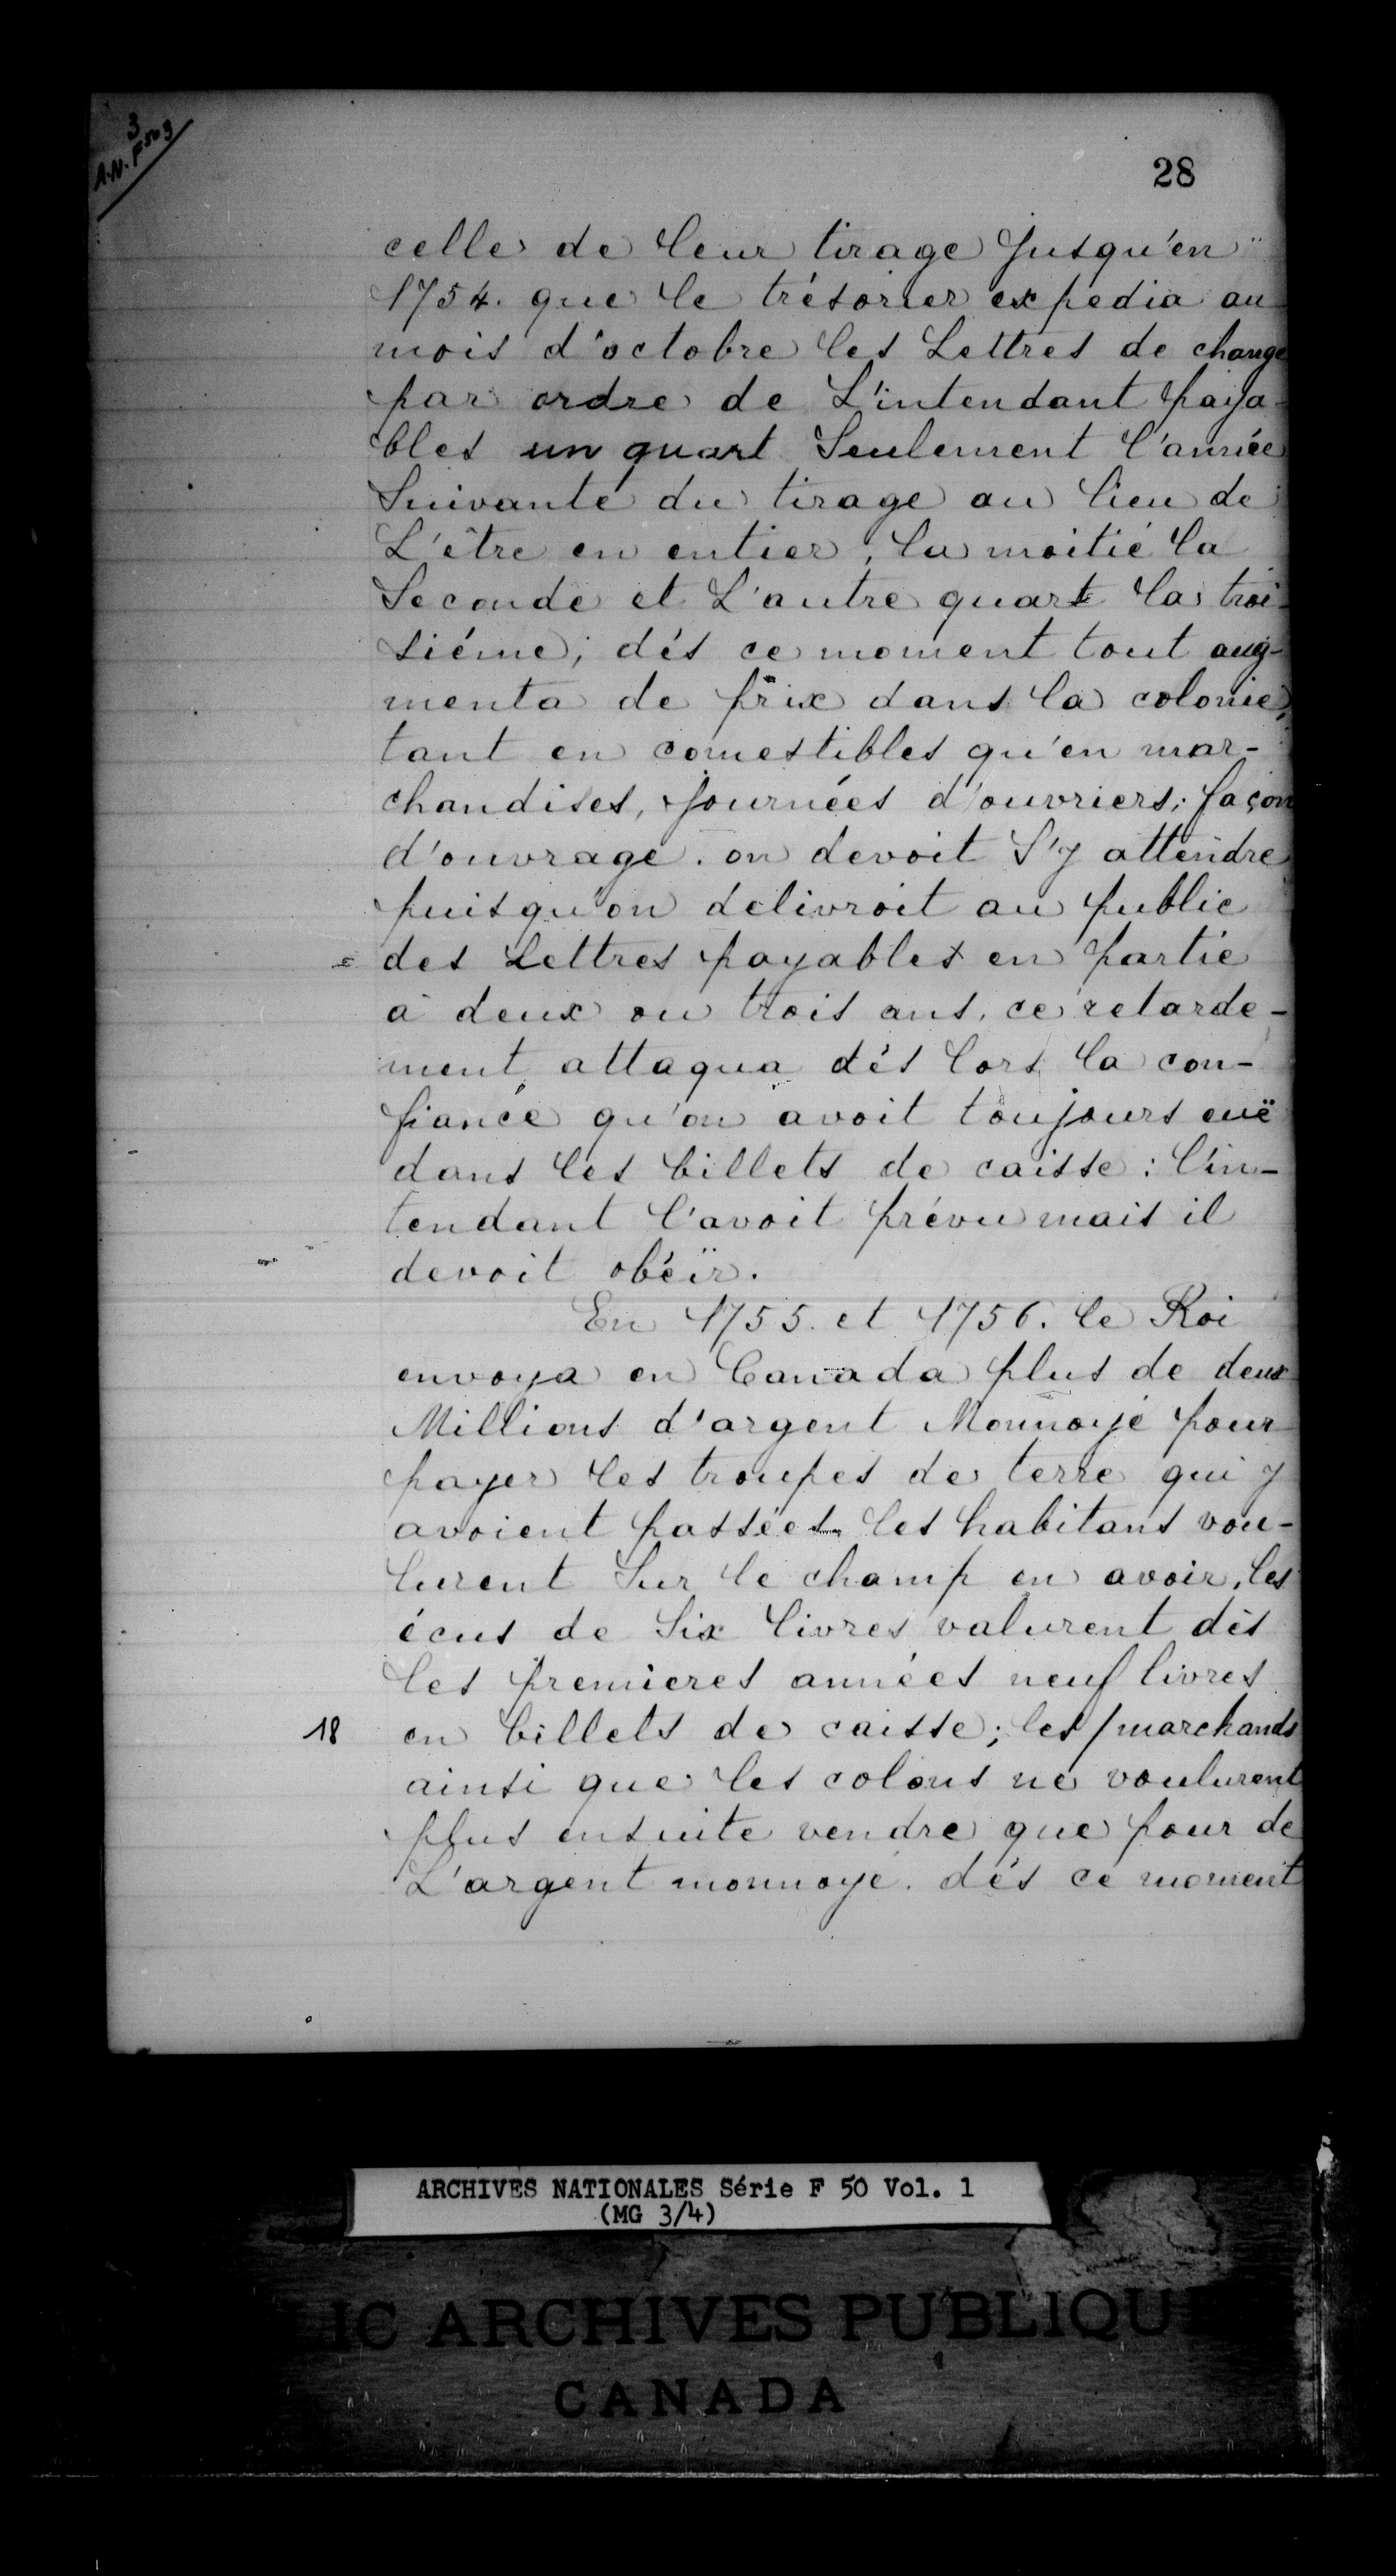 3
A.N. F 50 9
28
celle de leur tirage Jusqu'en
1754. que le trésorier expedia au
mois d'octobre les Lettres de change
par ordre de L'intendant paya-
bles un quart Seulement l'année
Suivante du tirage au lieu de
L'être en entier, la moitié la
Seconde et L'autre quart la troi-
siéme; dés ce moment tout aug-
menta de prix dans la colonie,
tant en comestibles qu'en mar-
chandises, Journées d'ouvriers, façon
d'ouvrage. on devoit S'y attendre
puisqu'on delivroit au public
des Lettres payables en partie
à deux ou trois ans. ce retarde-
ment attaqua dés lors la con-
fiance qu'on avoit toujours euë
dans les billets de caisse: l'in-
tendant l'avoit prévu mais il
devoit obéïr.
En 1755. et 1756. le Roi
envoya en Canada plus de deux
Millions d'argent Monnoyé pour
payer les troupes de terre qui y
avoient passées les habitans vou-
lurent Sur le champ en avoir, les
écus de Six livres valurent dès
les premieres années neuf livres
18 en billets de caisse; les/marchands
ainsi que les colons ne voulurent
plus ensuite vendre que pour de
L'argent monnoyé. dés ce moment
ARCHIVES NATIONALES Série F 50 Vol. 1
(MG 3/4)
LIC ARCHIVES PUBLIQU
CANADA